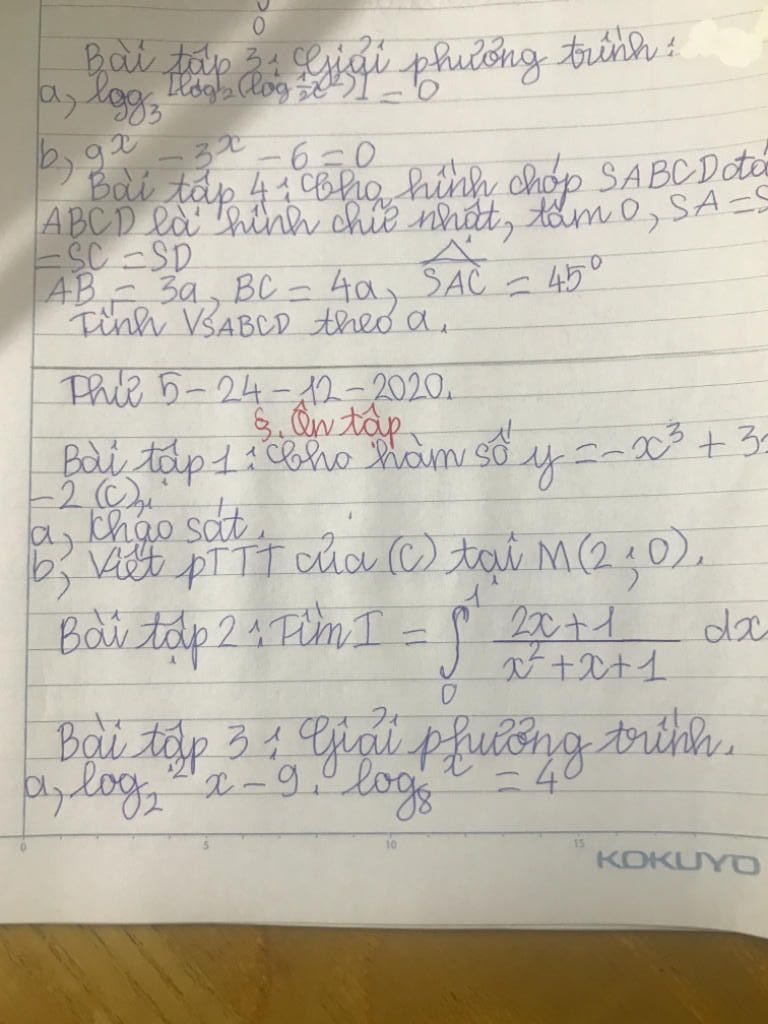 0
Bài tập 3: Giải phương trình:
a, log₃[log₂(log½x²)] = 0
b, 9ˣ - 3ˣ - 6 = 0
Bài tập 4: Cho hình chóp SABCD
ABCD là hình chữ nhật, tâm O, SA =
= SC = SD
AB = 3a, BC = 4a, SAC = 45°
Tính VSABCD theo a.
Thứ 5 - 24 - 12 - 2020.
§. Ôn tập
Bài tập 1: Cho hàm số y = -x³ + 3
- 2 (C).
a, khảo sát.
b, Viết pTTT của (C) tại M(2; 0).
Bài tập 2: Tìm I = ∫₀¹ (2x+1)/(x²+x+1) dx
Bài tập 3: Giải phương trình.
a, log₂² x - 9. log₈ˣ = 4
0 5 10 15
KOKUYO